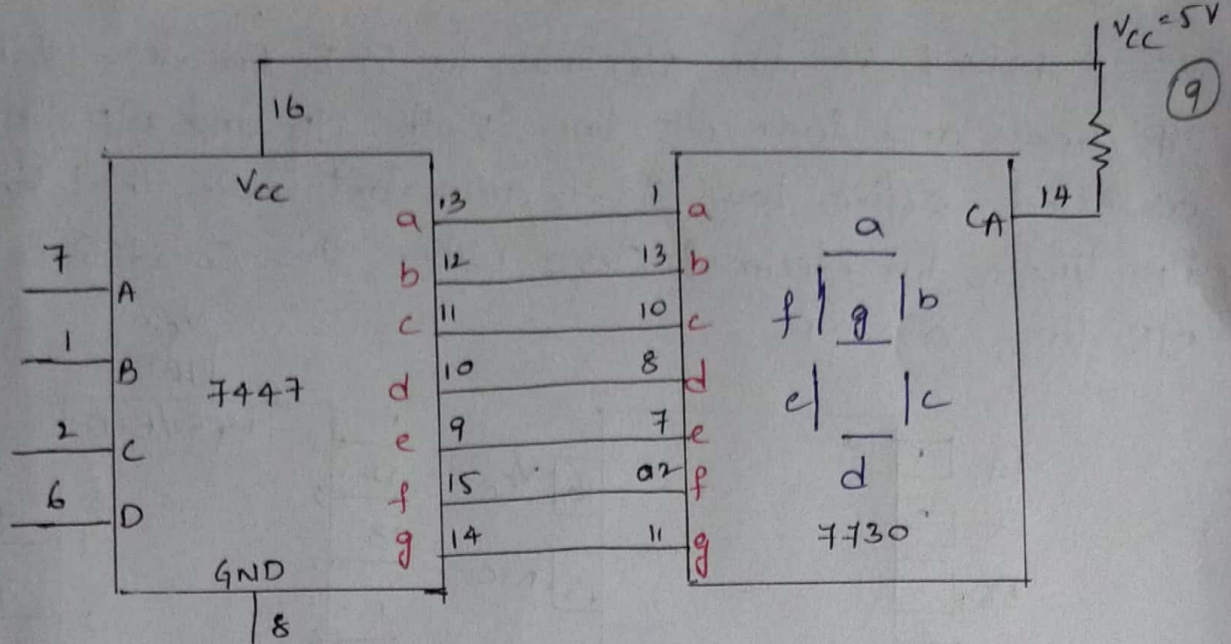 Vcc = 5V
9
16.
Vcc
7 A
1 B
2 C
6 D
7447
GND
8
a 13 1 a
b 12 13 b
c 11 10 c
d 10 8 d
e 9 7 e
f 15 02 f
g 14 11 g
CA 14
a
f g b
e c
d
7730